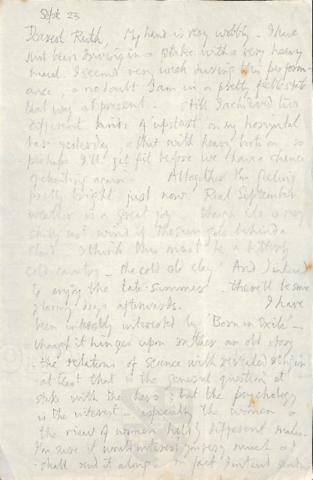 Sept. 23
Dearest Ruth, My hand is very wobbly – I have
just been driving in a stake with a very heavy
maul. I seemed very weak during this perform-
ance & no doubt I am in a pretty feeble state
that way at present. Still I achieved two
different kinds of upstart on my horizontal
bar yesterday, & that with heavy boots on, so
perhaps I'll get fit before we have a chance
of climbing again. Altogether I'm feeling
pretty bright just now. Real September
weather is a great joy – though it is very
chilly out wind if the sun gets behind a
cloud. I think this must be a bitterly
cold country – the cold old clay. And I intend
to enjoy the late summer – there'll be some
glorious days afterwards. I have
been intensely interested by 'Born in Exile' –
though it hinges upon rather an old story
– the relations of science with revealed religion
at least that is the general question at
stake with the hero; but the psychology
is the interest – especially the women &
the view of women held by different males.
I'm sure it would interest you very much & I
shall send it along – in fact I intend sending